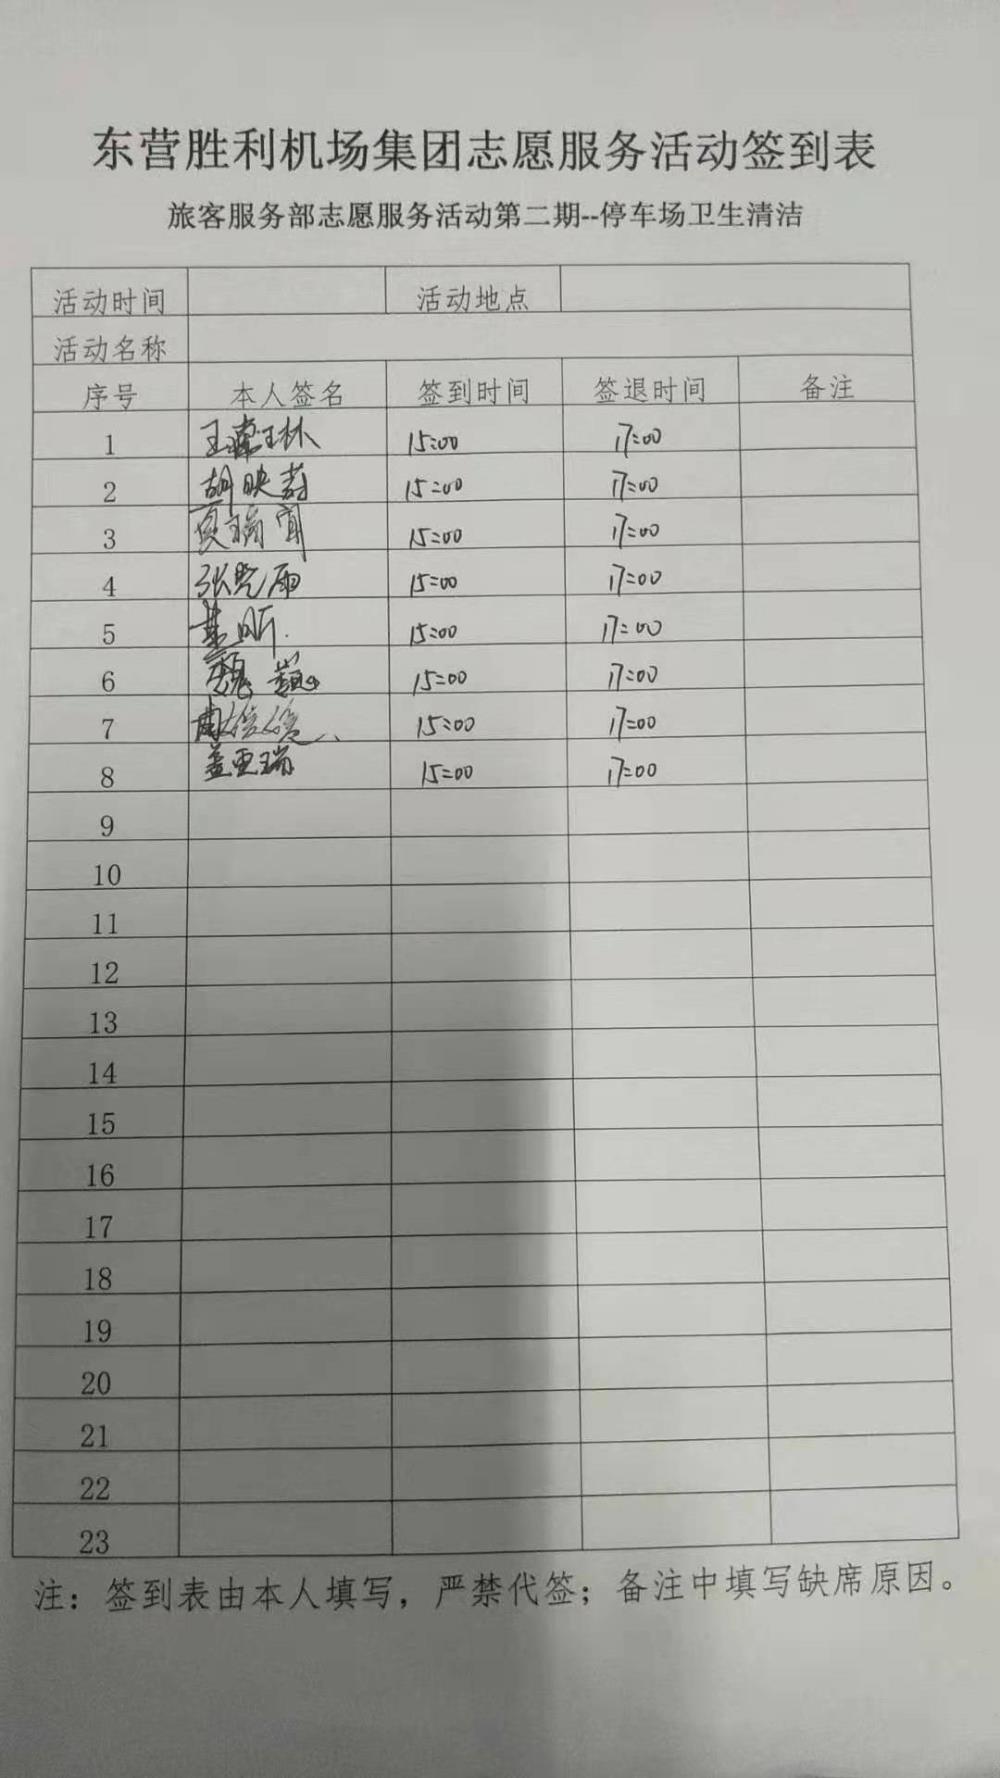 东营胜利机场集团志愿服务活动签到表
旅客服务部志愿服务活动第二期--停车场卫生清洁
活动时间 活动地点
活动名称
序号 本人签名 签到时间 签退时间 备注
1 15:00 17:00
2 胡映蔚 15:00 17:00
3 15:00 17:00
4 15:00 17:00
5 15:00 17:00
6 魏巍 15:00 17:00
7 15:00 17:00
8 盖亚瑞 15:00 17:00
9
10
11
12
13
14
15
16
17
18
19
20
21
22
23
注：签到表由本人填写，严禁代签；备注中填写缺席原因。